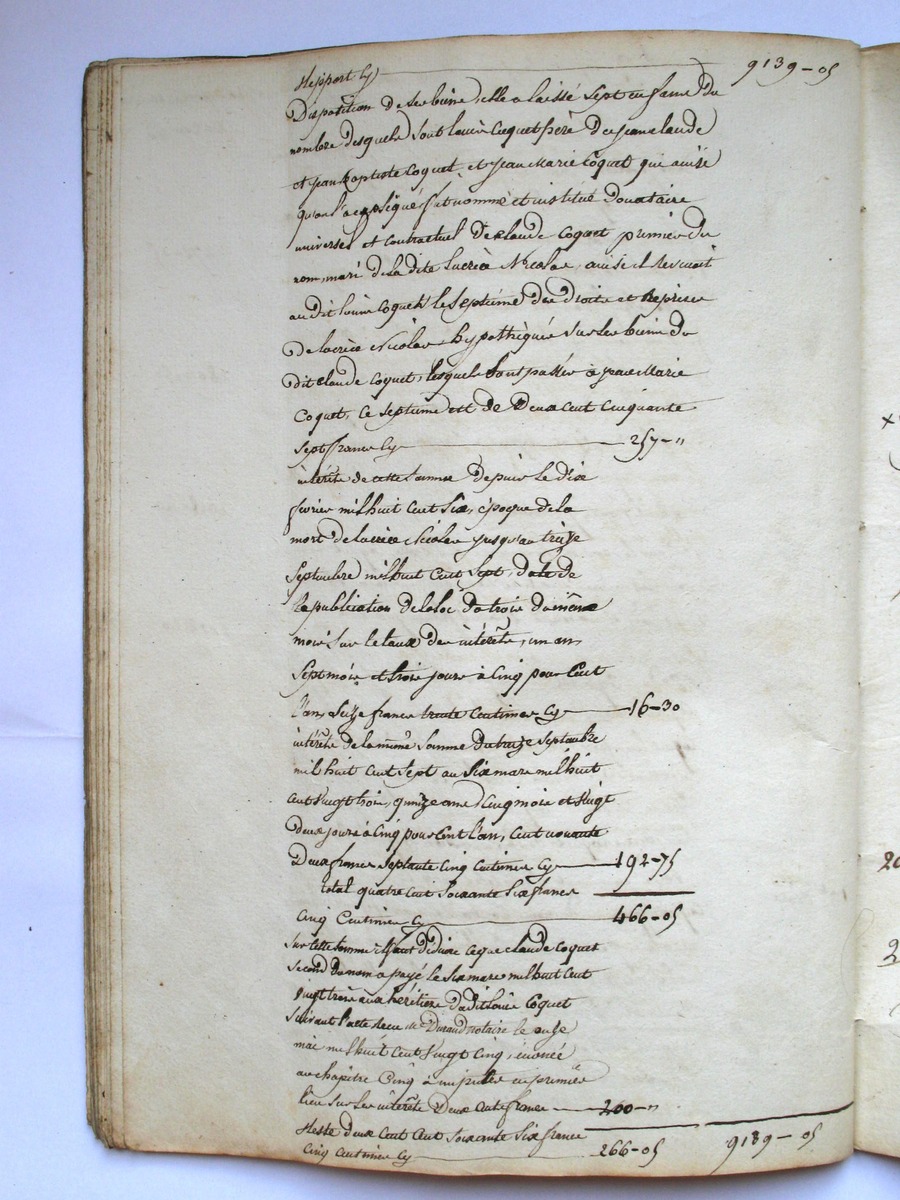 Report Cy 9139-05
Disposition de ses biens, elle a laissé sept enfans du
nombre desquels sont Louis Coquet frère de Jean Claude
et Jean Baptiste Coquet, et Jean Marie Coquet qui ainsi
qu'on l'a expliqué fut nommé et institué donataire
universel et contractuel de Claude Coquet premier du
nom, mari de la dite Lucrèce Nicolas, ainsi il revenait
au dit Louis Coquet le septième des droits et reprises
de Lucrèce Nicolas hypothéquées sur les biens du
dit Claude Coquet, lesquels sont passés à Jean Marie
Coquet, ce septième est de Deux cent cinquante
sept francs Cy 257-"
intérêts de cette somme depuis le dix
février mil huit cent six, époque de la
mort de Lucrèce Nicolas jusqu'au treize
Septembre mil huit cent sept, date de
la publication de la loi du trois du même
mois sur le taux des intérêts, un an
sept mois et trois jours à cinq pour cent
l'an, seize francs trente centimes Cy 16-30
intérêts de la même somme du treize septembre
mil huit cent sept au six mars mil huit
cent vingt trois, quinze ans cinq mois et vingt
deux jours à cinq pour cent l'an, cent nonante
deux francs septante cinq centimes Cy 192-75
total quatre cent soixante six francs
cinq centimes Cy 466-05
sur cette somme il faut déduire ce que Claude Coquet
second du nom a payé le six mars mil huit cent
vingt trois aux héritiers du dit Louis Coquet
suivant l'acte reçu Me Durand notaire le onze
mai mil huit cent vingt cinq, énoncé
au chapitre cinq à imputer en premier
lieu sur les intérêts Deux cents francs 200-"
Reste deux cent cent soixante six francs
cinq centimes Cy 266-05 9139-05